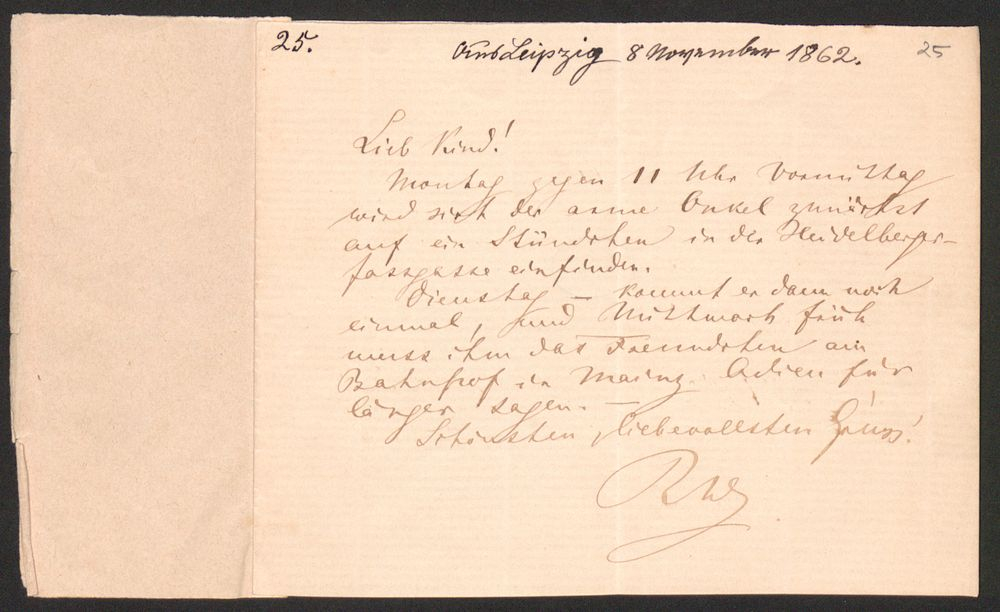 25. Aus Leipzig 8 November 1862. 25
Lieb Kind!
Montag gegen 11 Uhr Vormittag
wird sich der arme Onkel zunächst
auf ein Stündchen in der Heidelberger-
fassgasse einfinden.
Dienstag – kommt er dann noch
einmal, und Mittwoch früh
muss ihm das Freundchen am
Bahnhof in Mainz Adieu für
länger sagen. –
Schönsten, liebevollsten Gruss!
RW